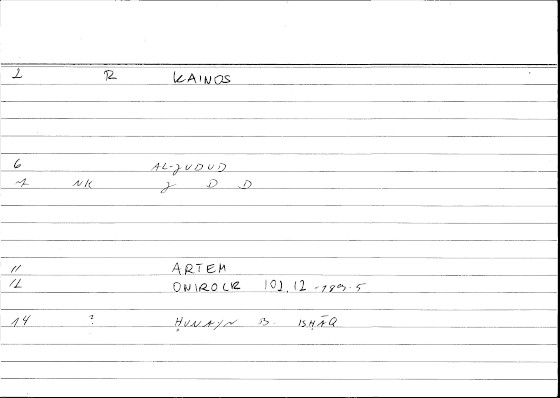 2 R KAINOS
6 AL-JUDUD
7 NK J D D
11 ARTEM
12 ONIROCR 102.12 - 103.5
14 ? ḤUNAYN B. ISḤĀQ